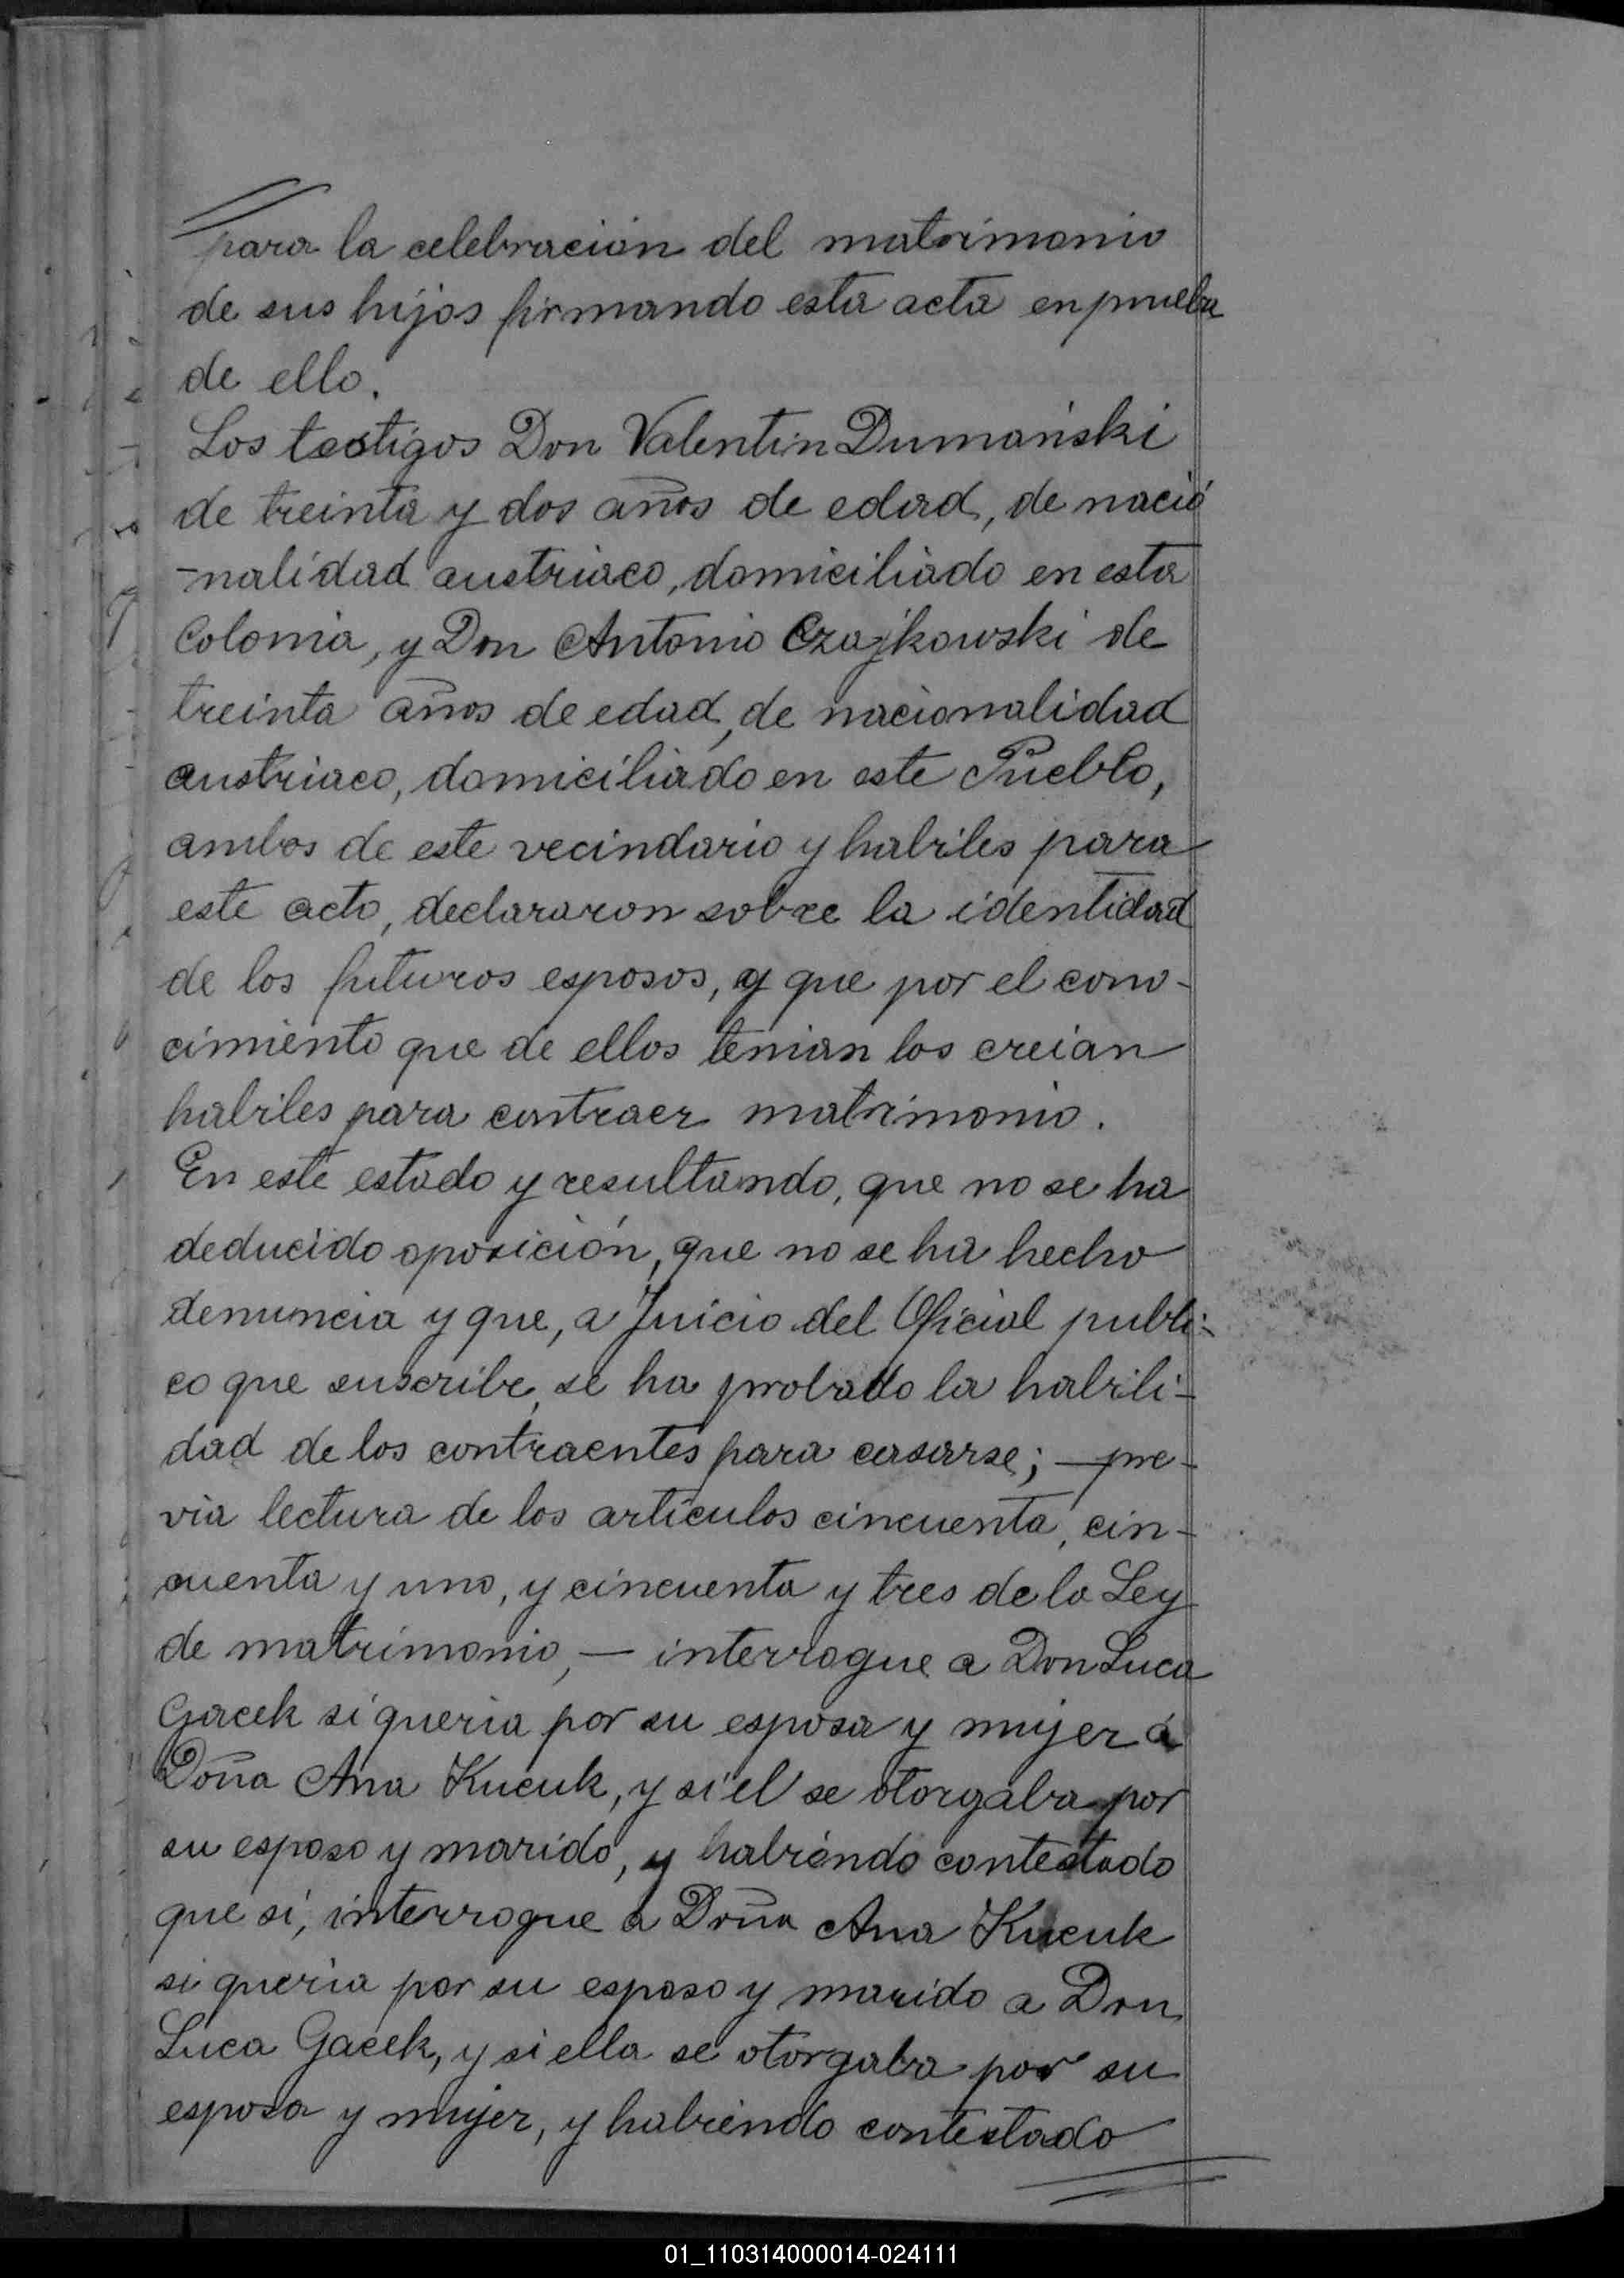 para la celebración del matrimonio
de sus hijos firmando esta acta en prueba
de ello.
Los testigos Don Valentin Dumański
de treinta y dos años de edad, de nacio
-nalidad austriaco, domiciliado en esta
Colonia, y Don Antonio Czajkowski de
treinta años de edad, de nacionalidad
austriaco, domiciliado en este Pueblo,
ambos de este vecindario y habiles para
este acto, declararon sobre la identidad
de los futuros esposos, y que por el cono-
cimiento que de ellos tenian los creian
habiles para contraer matrimonio.
En este estado y resultando, que no se ha
deducido oposición, que no se ha hecho
denuncia y que, a Juicio del Oficial publi-
co que suscribe, se ha probado la habili-
dad de los contraentes para casarse; — pre-
via lectura de los articulos cincuenta, cin-
cuenta y uno, y cincuenta y tres de la Ley
de matrimonio, — interrogue a Don Luca
Gacek si queria por su esposa y mujer á
Doña Ana Kucuk, y si el se otorgaba por
su esposo y marido, y habiendo contestado
que si, interrogue a Doña Ana Kucuk
si queria por su esposo y marido a Don
Luca Gacek, y si ella se otorgaba por su
esposa y mujer, y habiendo contestado
01_110314000014-024111